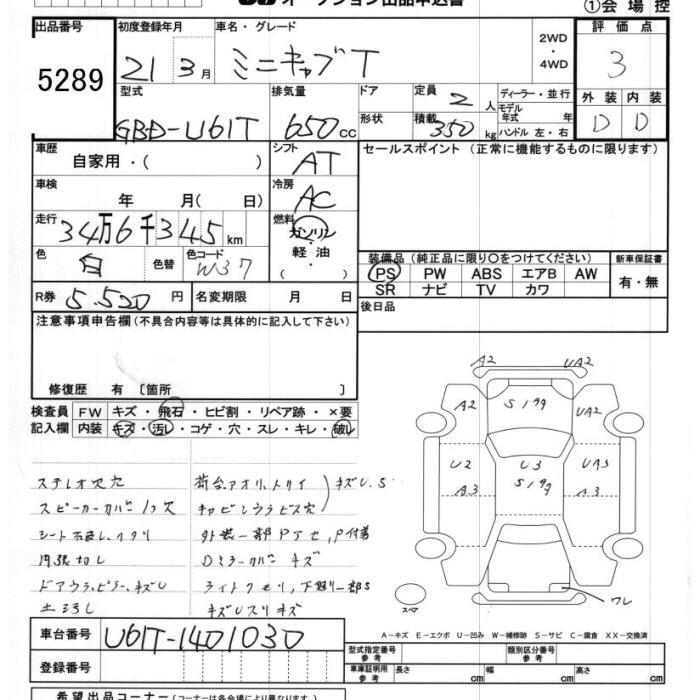 オークション出品申込書
①会場控
出品番号 初度登録年月 車名・グレード 評価点
5289 21 3月 ミニキャブT 2WD ・ 4WD 3
型式 排気量 ドア 定員 2 人 ディーラー・並行 外装 内装
GBD-U61T 650cc 形状 積載 350 kg モデル年式 年 ハンドル 左・右 D D
車歴 シフト セールスポイント (正常に機能するものに限ります)
自家用・( ) AT
車検 冷房
年 月(日) AC
走行 34万6千345km 燃料 ガソリン・軽油・( )
色 白 色替 色コード W37
装備品(純正品に限り〇をつけてください) 新車保証書
PS PW ABS エアB AW 有・無
SR ナビ TV カワ
R券 5.520円 名変期限 月 日 後日品
注意事項申告欄(不具合内容等は具体的に記入して下さい)
修復歴 有 [箇所 ]
検査員 FW キズ・飛石・ヒビ割・リペア跡・×要
記入欄 内装 キズ・汚レ・コゲ・穴・スレ・キレ・破レ
A2 UA2
A2 Sリ99 UA2
U2 U3 UA3
A3 Sリ99 A3
ワレ
スペア
ステレオ欠穴
スピーカーカバー1ケ欠
内張切レ
キズU.S
Dミラーカバーキズ
キズUスリキズ
A-キズ E-エクボ U-凹み W-補修跡 S-サビ C-腐食 XX-交換済
車台番号 U61T-1401030
登録番号
型式指定番号 参考 類別区分番号 参考
車庫証明用 参考 長さ cm 幅 cm 高さ cm
希望出品コーナー(コーナーは各会場により異なります)